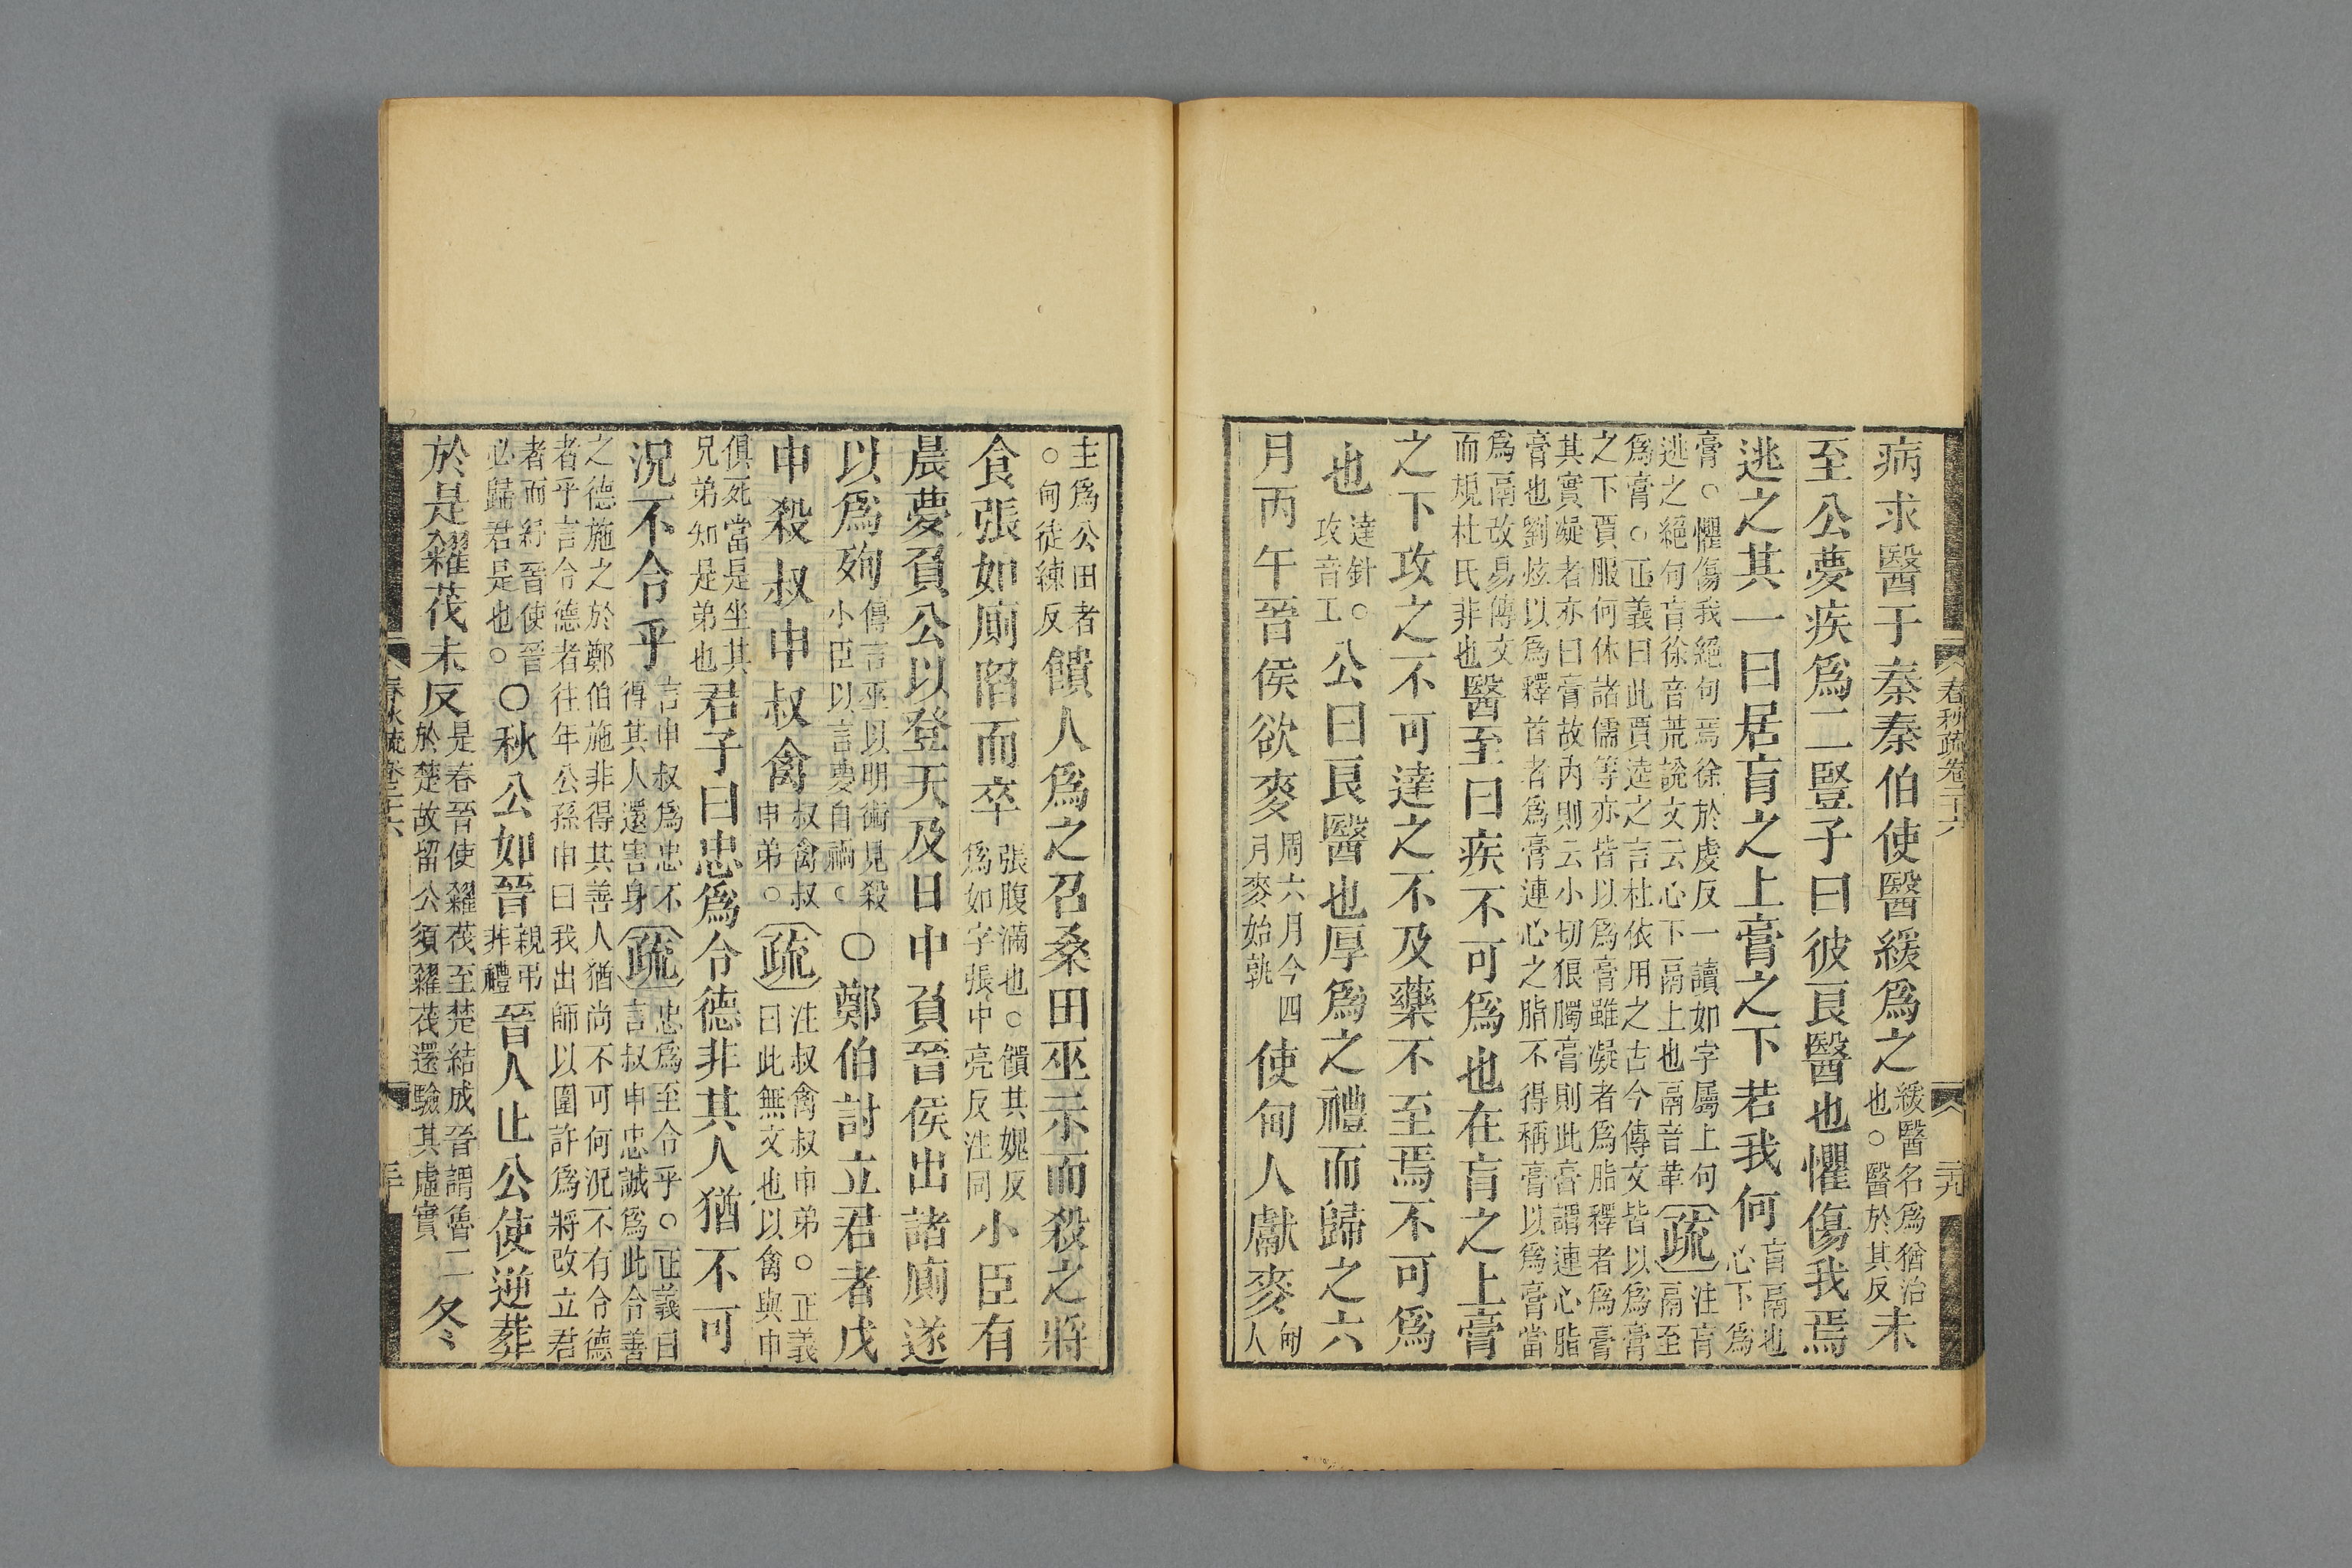 春秋疏卷二十六
二十九
病求醫于秦秦伯使醫緩爲之緩醫名爲猶治也○醫於其反未
至公夢疾爲二豎子曰彼良醫也懼傷我焉
逃之其一曰居肓之上膏之下若我何肓鬲也心下爲
膏○懼傷我絕句焉徐於虔反一讀如字屬上句
逃之絕句肓徐音荒說文云心下鬲上也鬲音革疏注肓鬲至
爲膏○正義曰此賈逵之言杜依用之古今傳文皆以爲膏
之下賈服何休諸儒等亦皆以爲膏雖凝者爲脂釋者爲膏
其實凝者亦曰膏故內則云小切狼臅膏則此膏謂連心脂
膏也劉炫以爲釋首者爲膏連心之脂不得稱膏以爲膏當
爲鬲改易傳文
而規杜氏非也醫至曰疾不可爲也在肓之上膏
之下攻之不可達之不及藥不至焉不可爲
也達針○攻音工公曰良醫也厚爲之禮而歸之六
月丙午晉侯欲麥周六月今四月麥始孰使甸人獻麥甸人
主爲公田者○甸徒練反饋人爲之召桑田巫示而殺之將
食張如廁陷而卒張腹滿也○饋其媿反爲如字張中亮反注同小臣有
晨夢負公以登天及日中負晉侯出諸廁遂
以爲殉傳言巫以明術見殺小臣以言夢自禍○○鄭伯討立君者戊
申殺叔申叔禽叔禽叔申弟○疏注叔禽叔申弟○正義曰此無文也以禽與申
俱死當是坐其兄弟知是弟也君子曰忠爲令德非其人猶不可
況不令乎言申叔爲忠不得其人還害身疏忠爲至令乎○正義曰言叔申忠誠爲此令善
之德施之於鄭伯施非得其善人猶尚不可何況不有令德
者乎言令德者往年公孫申曰我出師以圍許爲將改立君
者而紓晉使晉必歸君是也○○秋公如晉親弔非禮晉人止公使逆葬
於是糴茷未反是春晉使糴茷至楚結成晉謂魯二於楚故留公須糴茷還驗其虛實冬
春秋疏卷二十六
三十